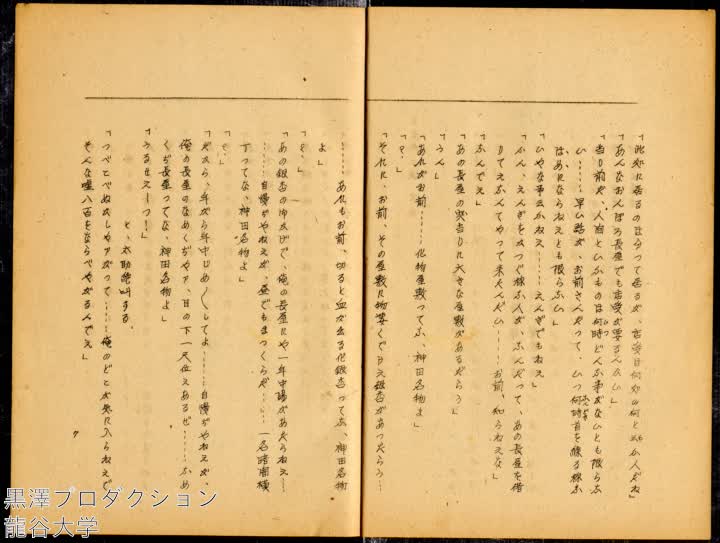 「此処に居るのは分って居るが、店受は何処の何と云ふ人だね」
「あんなおんぼろ長屋でも店受が要るんかい」
「当り前だ、人間といふものは何時どんな事がないとも限らな
い……早い話が、お前さんだって、いつ何時首を縊る様な
はめにならねえとも限らない」
「ひやな事云ふねえ……えんぎでもねえ」
「ふん、えんぎをかつぐ様な人が、なんだって、あの長屋を借
りてえなんてやって来たんだい……お前、知らねえな」
「なんでえ」
「あの長屋の突当りに大きな屋敷があるだらう」
「うん」
「あれがお前……化物屋敷ってな、神田名物よ」
「え」
「それに、お前、その屋敷に物凄くでけえ銀杏があったらう…
…… あれもお前、切ると血が出る化銀杏ってな、神田名物
よ」
「え」
「あの銀杏のおかげで、俺の長屋にや一年中陽があたらねえ…
……自慢ぢやねえが、昼でもまっくらだ……一名暗闇横
丁ってな、神田名物よ」
「え」
「だから、年がら年中じめ〱してよ……自慢ぢやねえが、
俺の長屋のなめくぢやァ、目の下一尺位えあるぜ……なめ
くぢ長屋ってな、神田名物よ」
「うるせえーっ!」
と、太助絶叫する。
「つべこべぬかしやァがって……俺のどこが気に入らねえで
そんな嘘八百をならべやがるんでえ」
7
黒澤プロダクション
龍谷大学